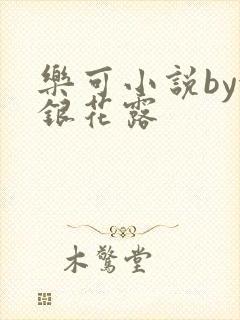 樂可小説by
銀花露
木驚堂